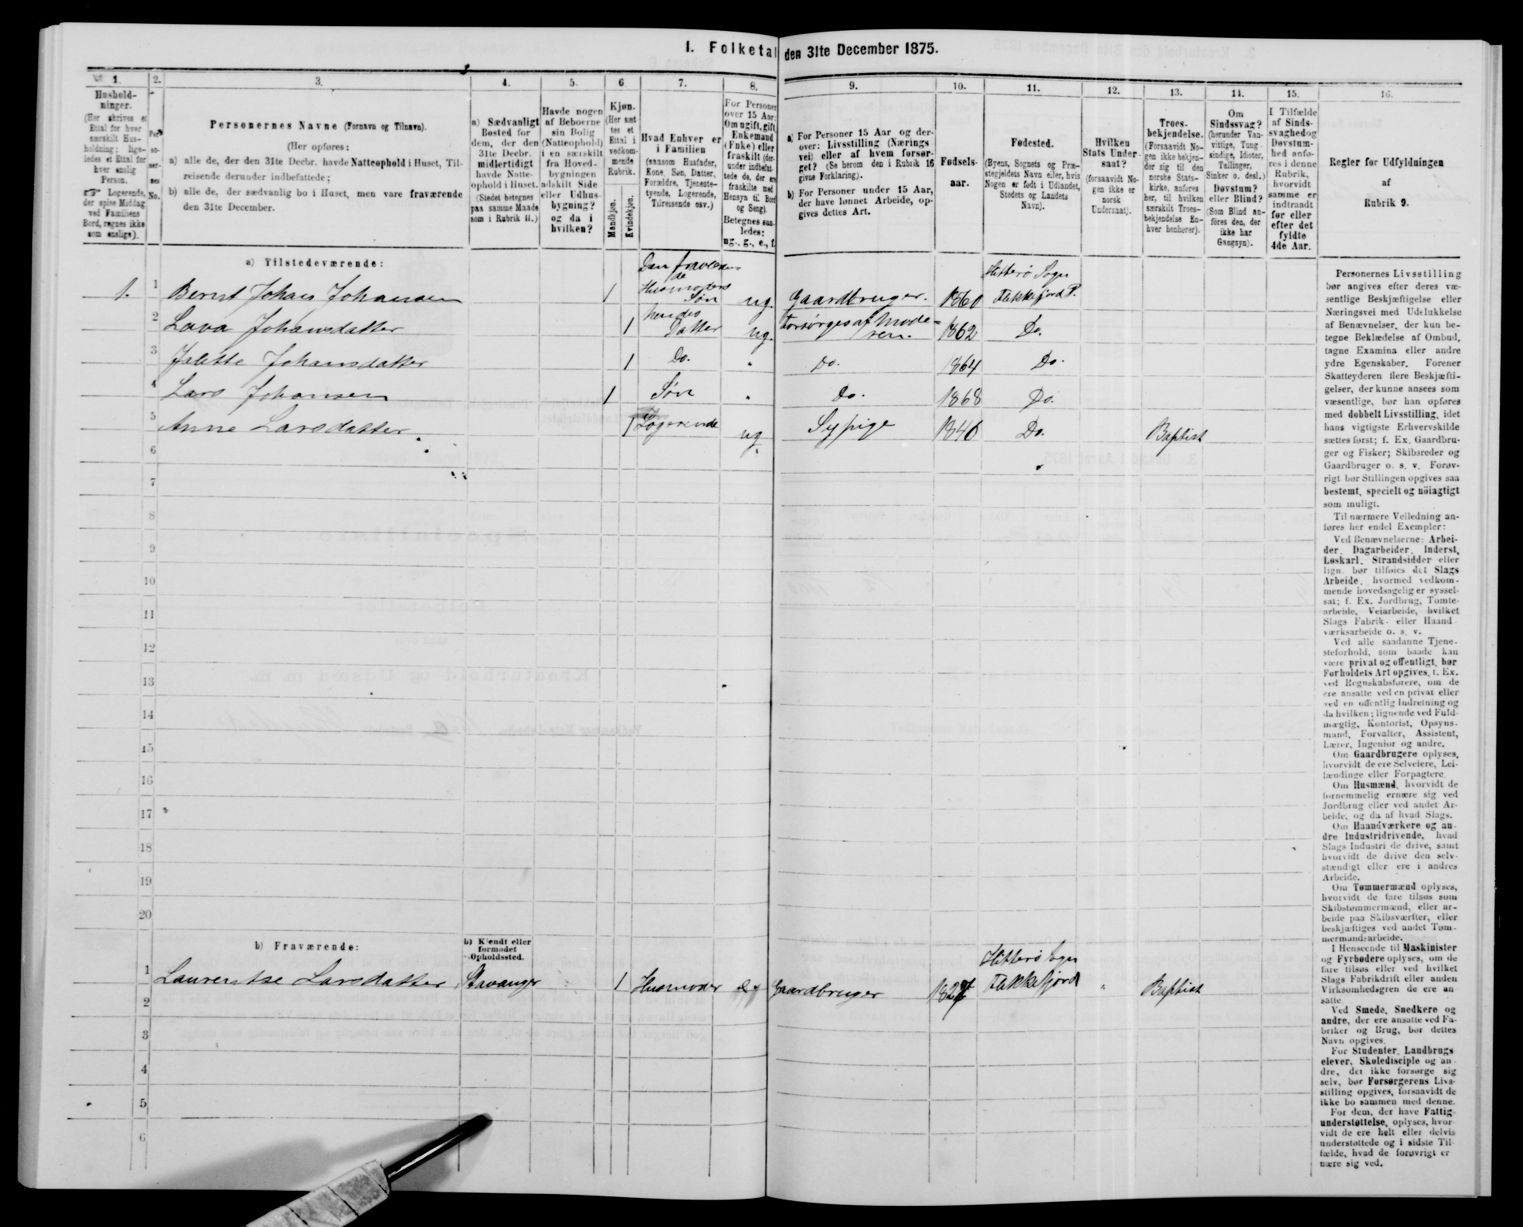 I. Folketal den 31te December 1875.
1. 2. 3. 4. 5. 6. 7. 8. 9. 10. 11. 12. 13. 14. 15. 16.
Hushold-
ninger.
(Her skrives et
Ettal for hver
særskilt Hus-
holdning; lige-
ledes et Ettal for
hver enslig
Person.
Logerende,
der spise Middag
ved Familiens
Bord, regnes ikke
som enslige).
Per-
so-
ner-
nes
No.
Personernes Navne (Fornavn og Tilnavn).
(Her opføres:
a) alle de, der den 31te Decbr. havde Natteophold i Huset, Til-
reisende derunder indbefattede;
b) alle de, der sædvanlig bo i Huset, men vare fraværende
den 31te December.
a) Sædvanligt
Bosted for
dem, der den
31te Decbr.
midlertidigt
havde Natte-
ophold i Huset.
(Stedet betegnes
paa samme Maade
som i Rubrik 11.)
Havde nogen
af Beboerne
sin Bolig
(Natteophold)
i en særskilt
fra Hoved-
bygningen
adskilt Side
eller Udhus-
bygning?
og da i
hvilken?
Kjøn.
(Her sæt
tes et
Ettal i
vedkom-
mende
Rubrik.
Mandkjøn.
Kvindekjøn.
Hvad Enhver er
i Familien
(saasom Husfader,
Kone, Søn, Datter,
Forældre, Tjeneste-
tyende, Logerende,
Tilreisende osv.)
For Personer
over 15 Aar:
Om ugift, gift,
Enkemand
(Enke) eller
fraskilt (der-
under indbefat-
tede de, der ere
fraskilte med
Hensyn til Bord
og Seng).
Betegnes saa-
ledes:
ug., g., e., f.
a) For Personer 15 Aar og der-
over: Livsstilling (Nærings
vei) eller af hvem forsør-
get? (Se herom den i Rubrik 16
givne Forklaring).
b) For Personer under 15 Aar,
der have lønnet Arbeide, op-
gives dettes Art.
Fødsels-
aar.
Fødested.
(Byens, Sognets og Præ-
stegjeldets Navn eller, hvis
Nogen er født i Udlandet,
Stedets og Landets
Navn).
Hvilken
Stats Under-
saat?
(forsaavidt No-
gen ikke er
norsk
Undersaat).
Troes-
bekjendelse.
(Forsaavidt No-
gen ikke bekjen-
der sig til den
norske Stats-
kirke, anføres
her, til hvilken
særskilt Troes-
bekjendelse En-
hver henhører).
Om
Sindssvag?
(herunder Van-
vittige, Tung
sindige, Idioter,
Tullinger,
Sinker o. desl.)
Døvstum?
eller Blind?
(Som Blind an-
føres den, der
ikke har
Gangsyn).
I Tilfælde
af Sinds-
svaghed og
Døvstum-
hed anfø-
res i denne
Rubrik,
hvorvidt
samme er
indtraadt
før eller
efter det
fyldte
4de Aar.
Regler for Udfyldningen
af
Rubrik 9.
a) Tilstedeværende:
1. 1 Bernt Johan Johansen 1 Den fraværende Husmoders Søn ug. Gaardbruger. 1860 Hitterø Sogn Flekkefjord P.
2 Lava Johansdatter 1 hendes Datter ug. Forsørges af Moderen. 1862 Do.
3 Jalette Johansdatter 1 Do. " Do. 1864 Do.
4 Lars Johansen 1 Søn " Do. 1868 Do.
5 Anne Larsdatter 1 Logerende ug. Sypige 1846 Do. Baptist
6
7
8
9
10
11
12
13
14
15
16
17
18
19
20
b) Fraværende:
b) Kjendt eller
formodet
Opholdssted.
1 Laurentse Larsdatter, Stavanger 1 Husmoder Gaardbruger Hitterø Sogn Flekkefjord " Baptist
2
3
4
5
6
Personernes Livsstilling
bør angives efter deres væ-
sentlige Beskjæftigelse eller
Næringsvei med Udelukkelse
af Benævnelser, der kun be-
tegne Beklædelse af Ombud,
tagne Examina eller andre
ydre Egenskaber. Forener
Skatteyderen flere Beskjæfti-
gelser, der kunne ansees som
væsentlige, bør han opføres
med dobbelt Livsstilling, idet
hans vigtigste Erhvervskilde
sættes først; f. Ex. Gaardbru-
ger og Fisker; Skibsreder og
Gaardbruger o. s. v. Forøv-
rigt bør Stillingen opgives saa
bestemt, specielt og nøiagtigt
som muligt.
Til nærmere Veiledning an-
føres her endel Exempler:
Ved Benævnelserne: Arbei-
der, Dagarbeider, Inderst,
Løskarl, Strandsidder eller
lign. bør tilføies det Slags
Arbeide, hvormed vedkom-
mende hovedsagelig er syssel-
sat; f. Ex. Jordbrug, Tomte-
arbeide, Veiarbeide, hvilket
Slags Fabrik- eller Haand-
værksarbeide o. s. v.
Ved alle saadanne Tjene-
steforhold, som baade kan
være privat og offentligt, bør
Forholdets Art opgives, f. Ex.
ved Regnskabsførere, om de
ere ansatte ved en privat eller
ved en offentlig Indretning og
da hvilken; lignende ved Fuld-
mægtig, Kontorist, Opsyns-
mand, Forvalter, Assistent,
Lærer, Ingeniør og andre.
Om Gaardbrugere oplyses,
hvorvidt de ere Selveiere, Lei-
lændinge eller Forpagtere.
Om Husmænd, hvorvidt de
fornemmelig ernære sig ved
Jordbrug eller ved andet Ar-
beide, og da af hvad Slags.
Om Haandværkere og an-
dre Industridrivende, hvad
Slags Industri de drive, samt
hvorvidt de drive den selv-
stændigt eller ere i andres
Arbeide.
Om Tømmermænd oplyses,
hvorvidt de fare tilsøs som
Skibstømmermænd, eller ar-
beide paa Skibsværfter, eller
beskjæftiges ved andet Tøm-
mermandsarbeide.
I Henseende til Maskinister
og Fyrbødere oplyses, om de
fare tilsøs eller ved hvilket
Slags Fabrikdrift eller anden
Virksomhedsgren de ere an-
satte.
Ved Smede, Snedkere og
andre, der ere ansatte ved Fa-
briker og Brug, bør dettes
Navn opgives.
For Studenter, Landbrugs
elever, Skoledisciple og an-
dre, der ikke forsørge sig
selv, bør Forsørgerens Livs-
stilling opgives, forsaavidt de
ikke bo sammen med denne.
For dem, der have Fattig-
understøttelse, oplyses, hvor-
vidt de ere helt eller delvis
understøttede og i sidste Til-
fælde, hvad de forøvrigt er-
nære sig ved.